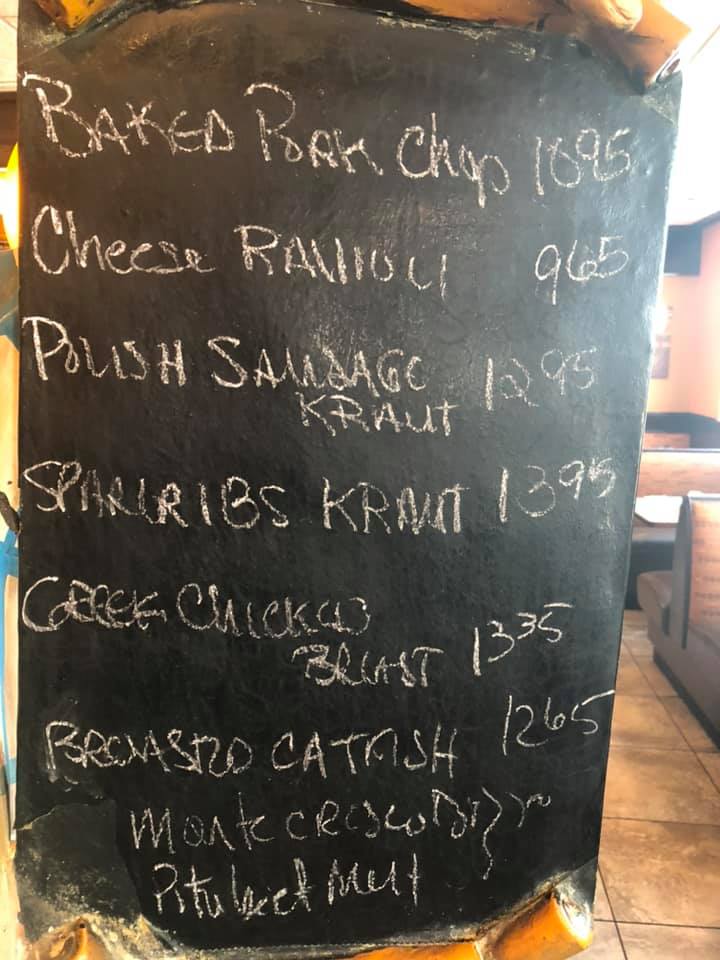 BAKED PORK Chop 1095
Cheese RAVIOLI 965
POLISH SAUSAGE 1295
KRAUT
SPARERIBS KRAUT 1395
GREEK CHICKEN
BREAST 1335
BROASTED CATFISH 1265
Monte CRISCO
Pita Melt